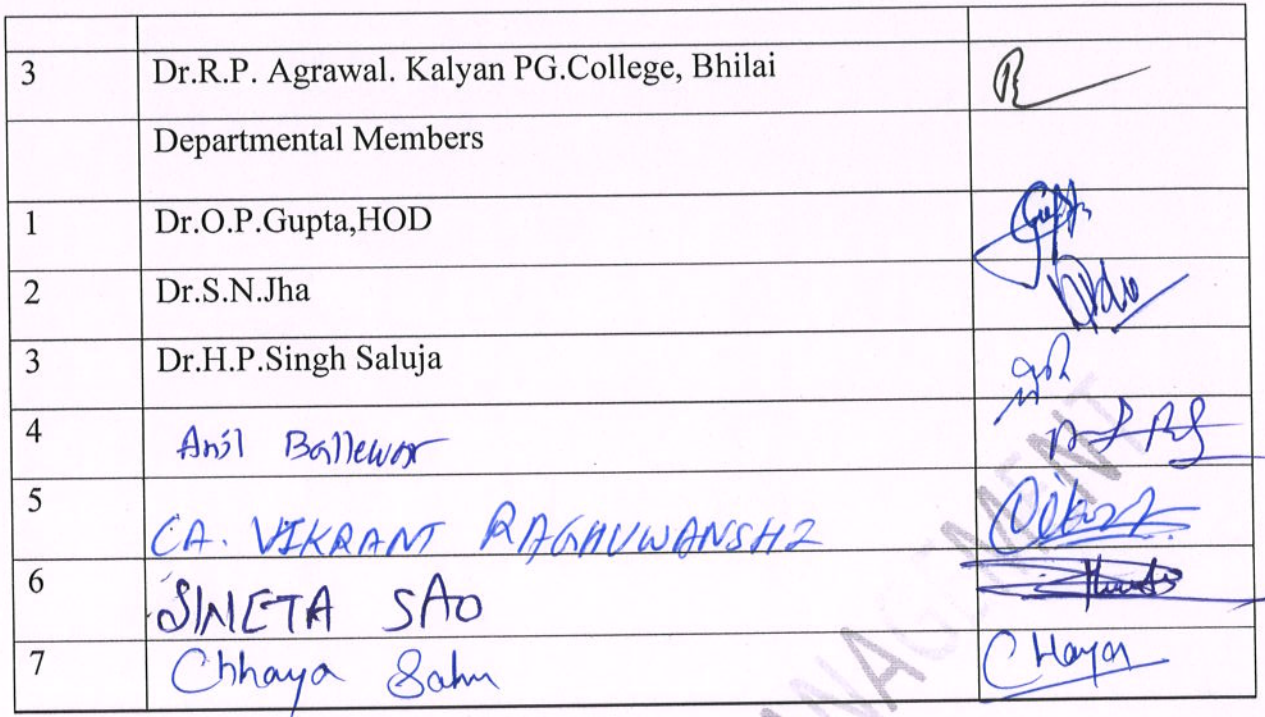 3 Dr.R.P. Agrawal. Kalyan PG.College, Bhilai
Departmental Members
1 Dr.O.P.Gupta,HOD
2 Dr.S.N.Jha
3 Dr.H.P.Singh Saluja
4 Anil Ballewar
5 CA. VIKRANT RAGHUWANSHI
6 SAO
7 Chhaya Sahu CHaya